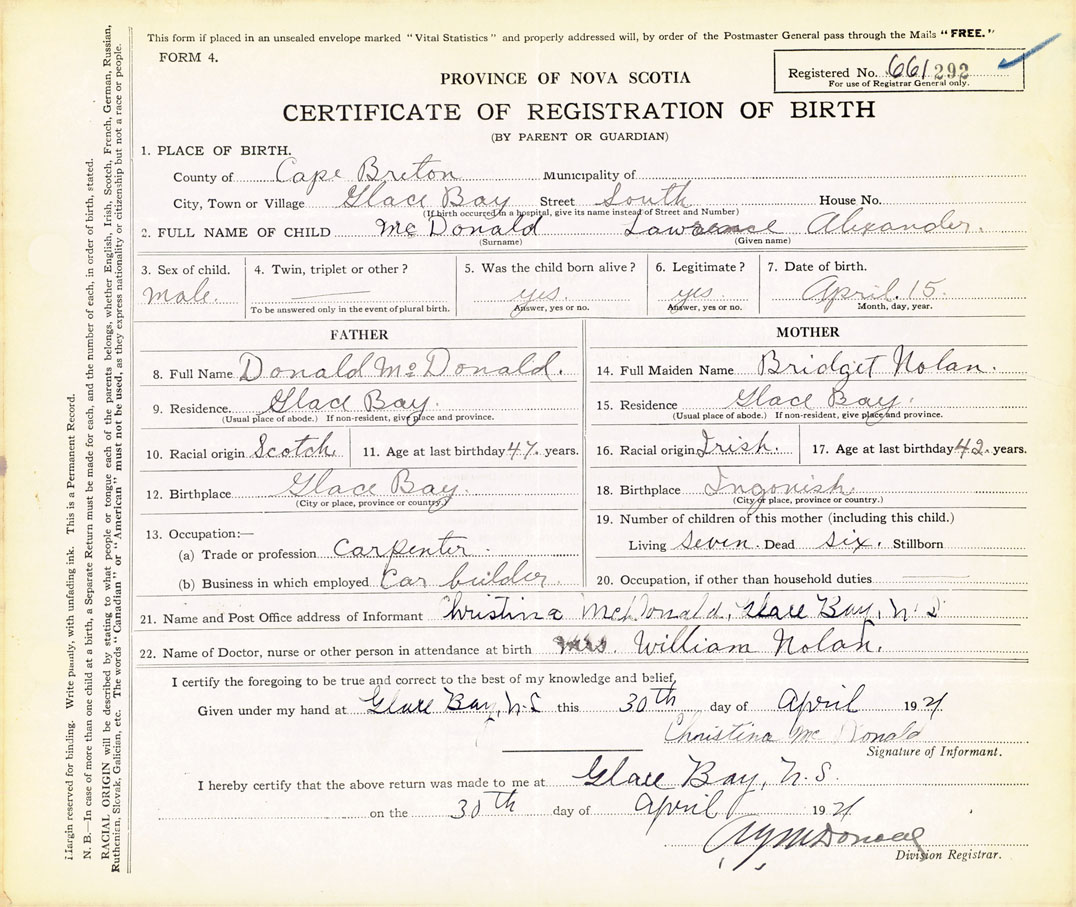 This form if placed in an unsealed envelope marked "Vital Statistics" and properly addressed will, by order of the Postmaster General pass through the Mails "FREE."
FORM 4.
Registered No. 661 292
For use of Registrar General only.
PROVINCE OF NOVA SCOTIA
CERTIFICATE OF REGISTRATION OF BIRTH
(BY PARENT OR GUARDIAN)
1. PLACE OF BIRTH.
County of Cape Breton Municipality of
City, Town or Village Glace Bay Street South House No.
(If birth occurred in a hospital, give its name instead of Street and Number)
2. FULL NAME OF CHILD Mc Donald Lawrence Alexander.
(Surname) (Given name)
3. Sex of child. 4. Twin, triplet or other? 5. Was the child born alive? 6. Legitimate? 7. Date of birth.
male. yes. yes. April. 15.
To be answered only in the event of plural birth. Answer, yes or no. Answer, yes or no. Month, day, year.
FATHER
8. Full Name Donald Mc Donald.
9. Residence Glace Bay.
(Usual place of abode.) If non-resident, give place and province.
10. Racial origin Scotch 11. Age at last birthday 47. years.
12. Birthplace Glace Bay.
(City or place, province or country.)
13. Occupation:—
(a) Trade or profession Carpenter.
(b) Business in which employed Car builder.
MOTHER
14. Full Maiden Name Bridget Nolan.
15. Residence Glace Bay.
(Usual place of abode.) If non-resident, give place and province.
16. Racial origin Irish. 17. Age at last birthday 42. years.
18. Birthplace Ingonish.
(City or place, province or country.)
19. Number of children of this mother (including this child.)
Living seven. Dead six. Stillborn
20. Occupation, if other than household duties
21. Name and Post Office address of Informant Christina McDonald, Glace Bay, N S
22. Name of Doctor, nurse or other person in attendance at birth Mrs. William Nolan.
I certify the foregoing to be true and correct to the best of my knowledge and belief,
Given under my hand at Glace Bay, N.S this 30th day of April 1921
Christina Mc Donald
Signature of Informant.
I hereby certify that the above return was made to me at Glace Bay, N.S.
on the 30th day of April 1921
McDonald
Division Registrar.
Margin reserved for binding. Write plainly, with unfading ink. This is a Permanent Record.
N. B.—In case of more than one child at a birth, a Separate Return must be made for each, and the number of each, in order of birth, stated.
RACIAL ORIGIN will be described by stating to what people or tongue each of the parents belongs, whether English, Irish, Scotch, French, German, Russian,
Ruthenian, Slovak, Galician, etc. The words "Canadian" or "American" must not be used, as they express nationality or citizenship but not a race or people.